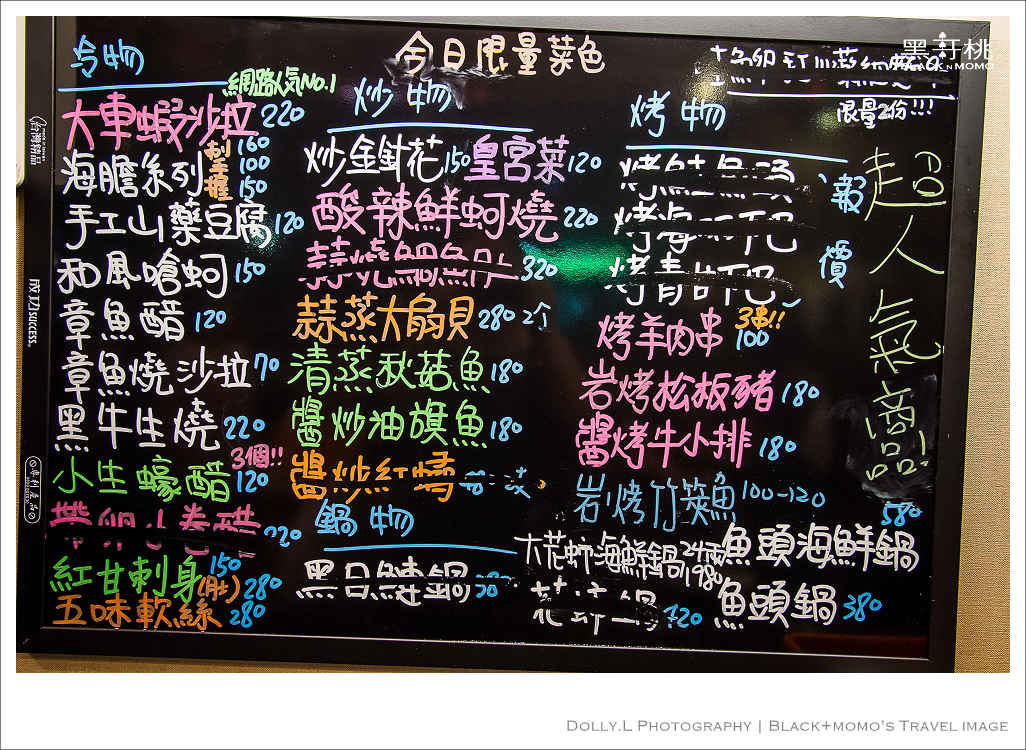 今日限量菜色
黑軒桃
BLACK N MOMO
限量2份!!!
冷物
網路人氣NO.1
大車蝦沙拉 220
海膽系列 刺 160
100
握 150
手工山藥豆腐 120
和風嗆蚵 150
章魚醋 120
章魚燒沙拉 70
黑牛生燒 220
3個!!
小生蠔醋 120
220
紅甘刺身 150
(肚) 280
五味軟絲 280
炒物
炒金針花 150 皇宮菜 120
酸辣鮮蚵燒 220
320
蒜蒸大扇貝 280 2个
清蒸秋菇魚 180
醬炒油旗魚 180
醬炒紅蟳
鍋物
鍋
烤物
報
價
3串!!
烤羊肉串 100
岩烤松板豬 180
醬烤牛小排 180
岩烤竹筴魚 100-120
大花蚵海鮮鍋 1980
鍋 420
超人氣商品
580
魚頭海鮮鍋
魚頭鍋 380
台灣精品
成功 SUCCESS.
專利產品
DOLLY.L PHOTOGRAPHY | BLACK+MOMO'S TRAVEL IMAGE